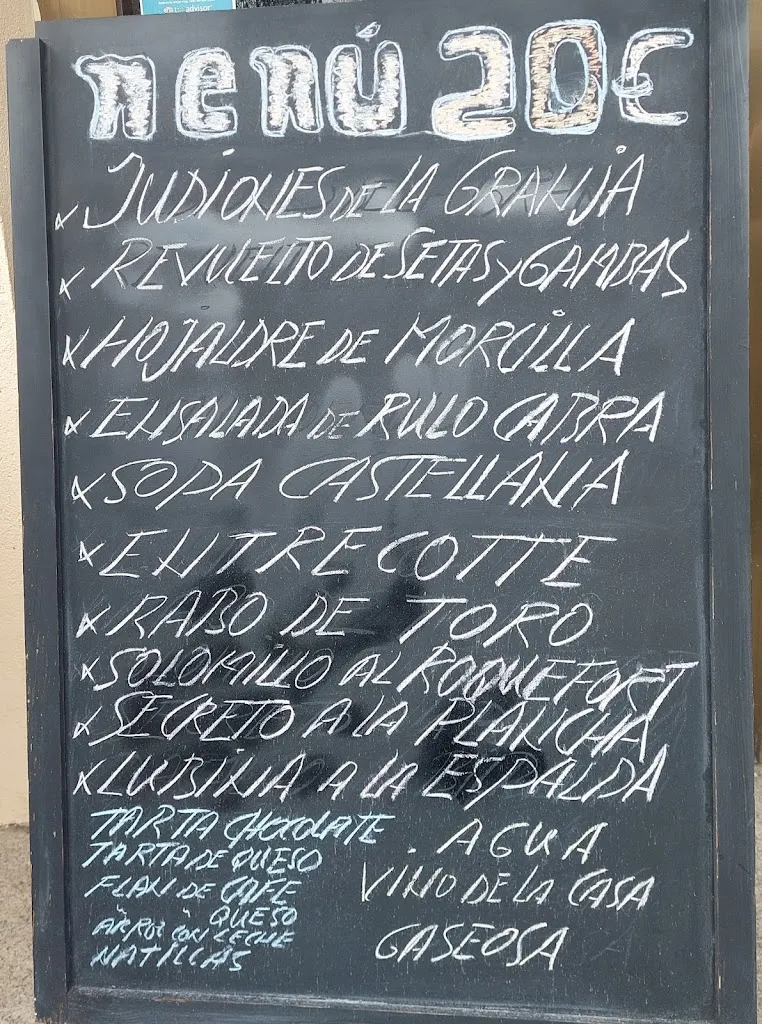 advisor
MENÚ 20€
JUDIONES DE LA GRANJA
REVUELTO DE SETAS Y GAMBAS
HOJALDRE DE MORCILLA
ENSALADA DE RULO CABRA
SOPA CASTELLANA
ENTRECOTTE
RABO DE TORO
SOLOMILLO AL ROQUEFORT
SECRETO A LA PLANCHA
LUBINA A LA ESPALDA
TARTA CHOCOLATE
TARTA DE QUESO
FLAN DE CAFE
QUESO
ARROZ CON LECHE
NATILLAS
AGUA
VINO DE LA CASA
GASEOSA